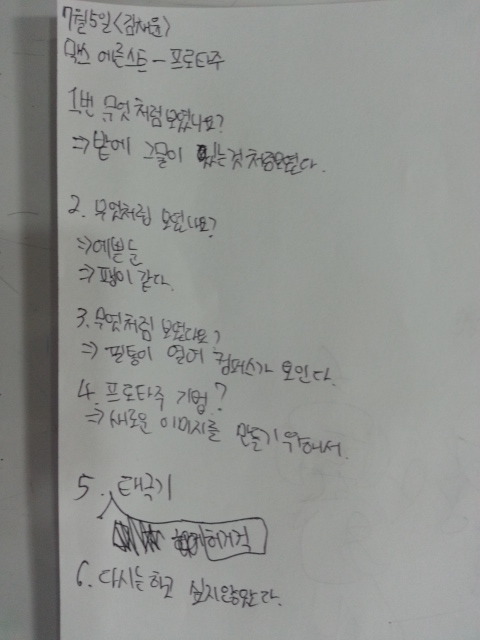 7월5일<김채윤>
막스 에른스트-프로타주
1번 무엇처럼보였나요?
⇒밭에 그물이 있는것처럼보였다.
2. 무엇처럼 보였나요?
⇒예쁜 눈
⇒팽이 같다.
3. 무엇처럼 보였나요?
⇒ 필통이 열어 컴퍼스가 보인다.
4. 프로타주 기법?
⇒새로운 이미지를 만들기 위해서.
5. 태극기
헝겊
6. 다시는하고 싶지않았다.